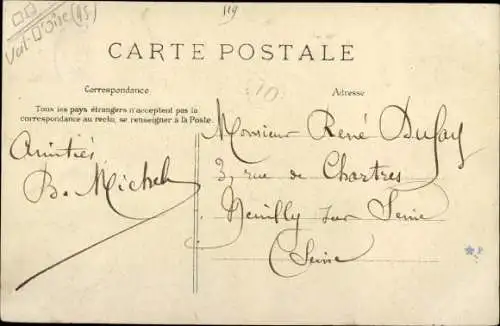 Val-D'Oise (95)
119
CARTE POSTALE
Correspondance
Tous les pays étrangers n'acceptent pas la
correspondance au recto, se renseigner à la Poste.
Amitiés
B. Michel
10
Adresse
Monsieur René Dufay
3, rue de Chartres
Neuilly sur Seine
(Seine